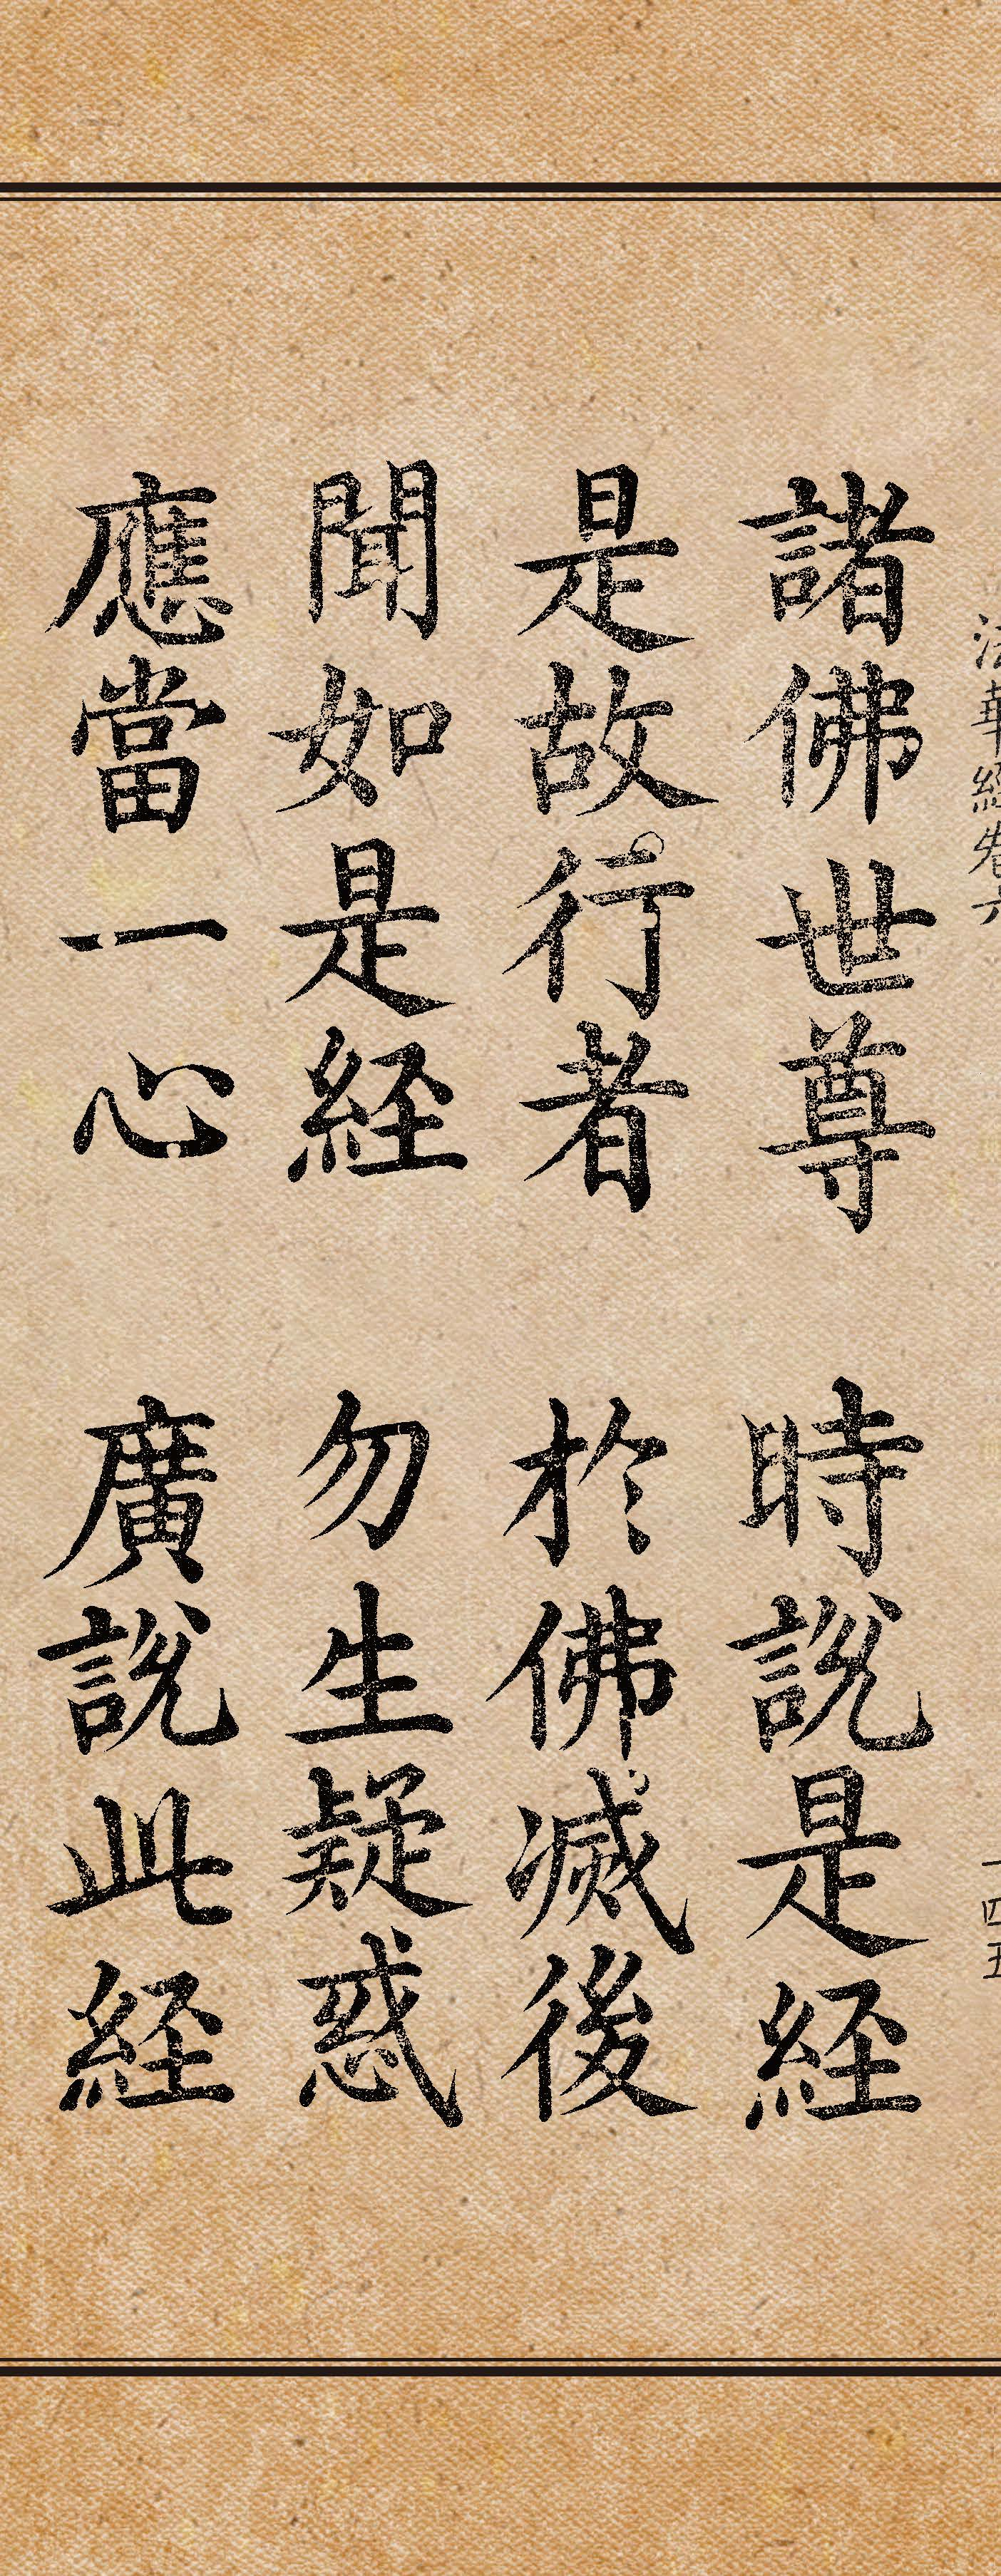 法華経卷六 一四五
諸佛世尊 時說是経
是故行者 於佛滅後
聞如是経 勿生疑惑
應當一心 廣說此経